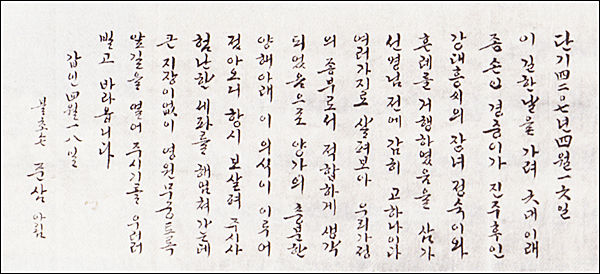 단기四二 년四월一六일
이 길한날을 가려 이래
종손인 경중이가 진주후인
강대흥씨의 잔녀 정숙이와
혼례를 거행하였음을 삼가
선영님 전에 감히 고하나이다
여러가지로 살펴보아 우리가정
의 종부로서 적합하게 생각
되었음으로 양가의 충분한
양해아래 이 의식이 이루어
졌아오니 항시 보살펴 주시사
험난한 세파를 헤엄쳐가는데
큰 지장이없이 영원무궁토록
앞길을 열어 주시기를 우러러
빌고 바라옵니다
갑인四월一八일
불초손 준삼 아룀